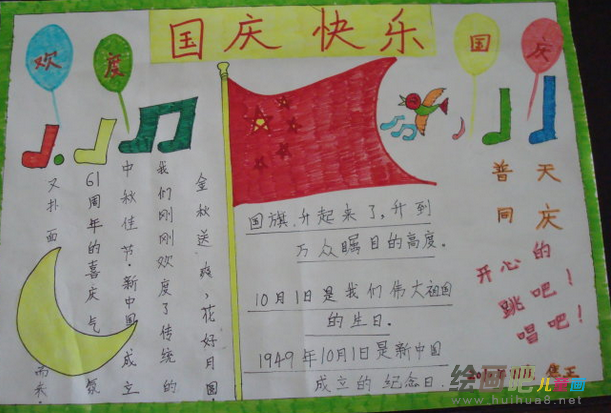 国庆快乐
欢度
国庆
金秋送爽、花好月圆
我们刚刚欢度了传统的
中秋佳节.新中国成立
61周年的喜庆气氛
又扑面而来
国旗.升起来了.升到
万众瞩目的高度.
10月1日是我们伟大祖国
的生日.
1949年10月1日是新中国
成立的纪念日.
普天
同庆
开心的
跳吧!
唱吧!
绘画吧儿童画
www.huihua8.net